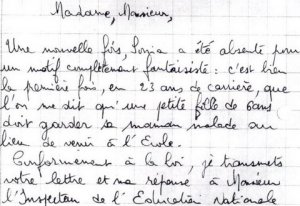 Madame, Monsieur,
Une nouvelle fois, Sonia a été absente pour
un motif complètement fantaisiste : c'est bien
la première fois, en 23 ans de carrière, que
l'on me dit qu'une petite fille de 6 ans
doit garder sa maman malade au
lieu de venir à l'Ecole.
Conformément à la loi, je transmets
votre lettre et ma réponse à Monsieur
l'Inspecteur de l'Education nationale